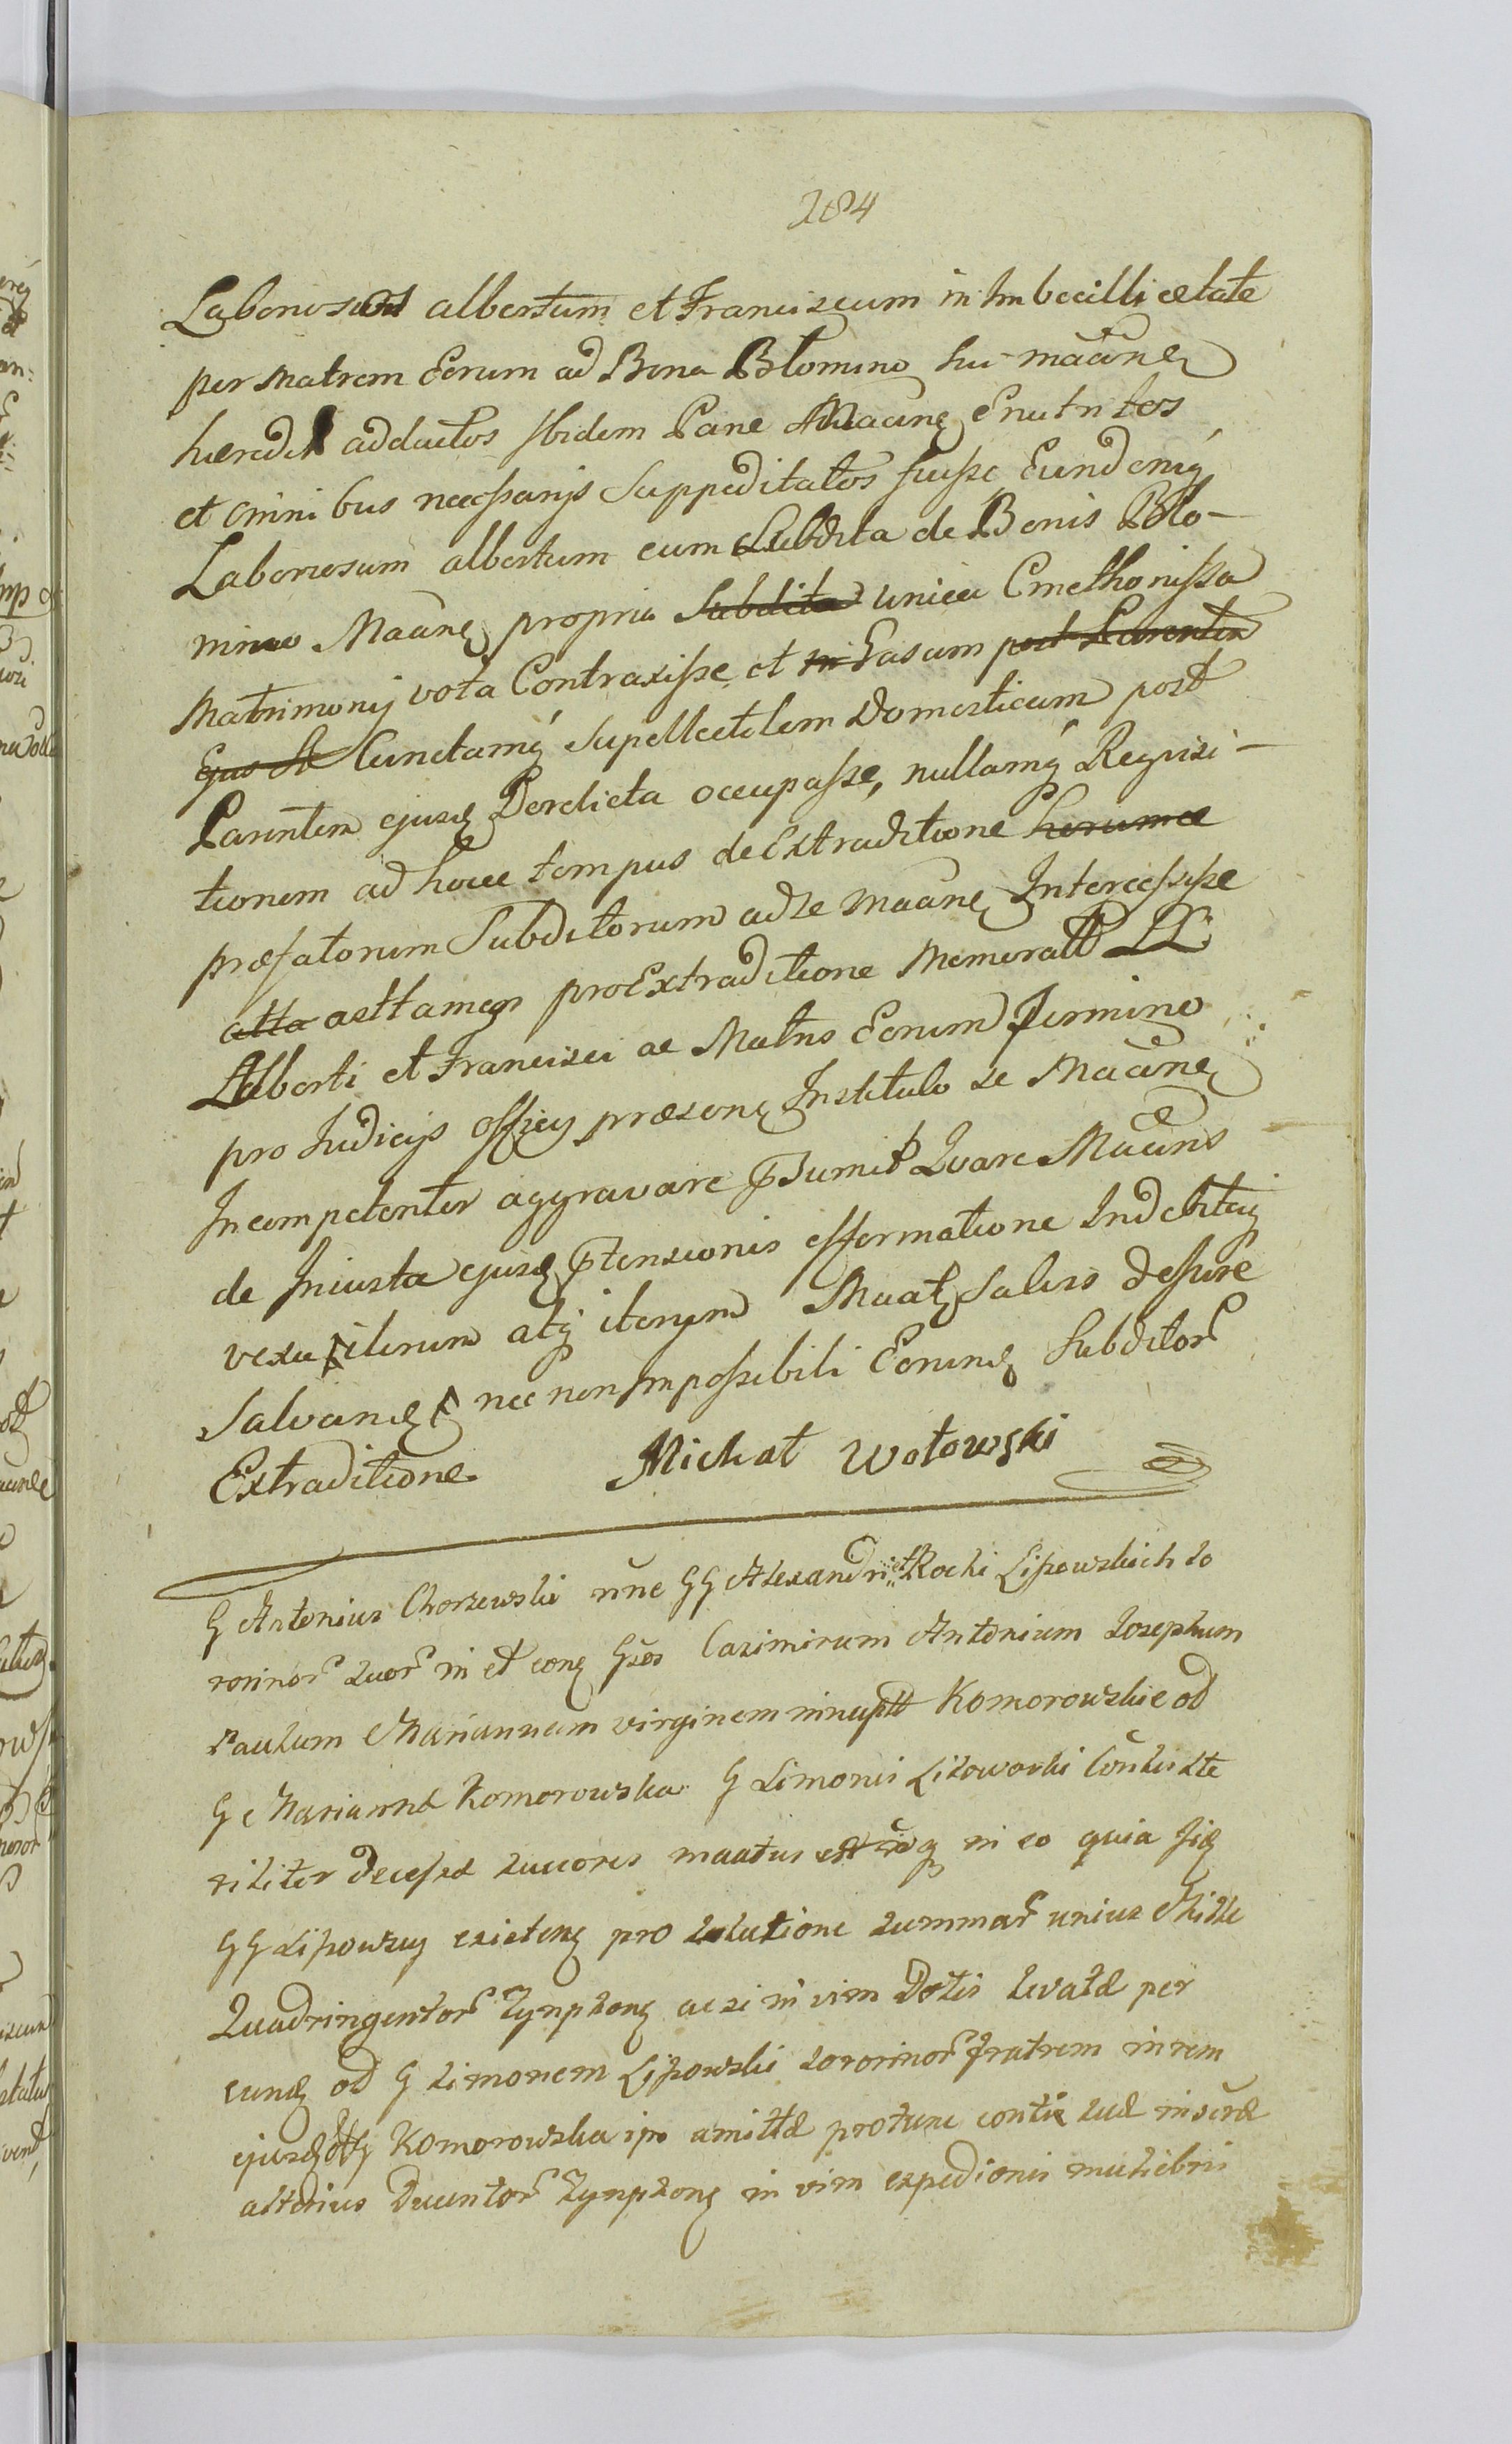 284
Laboriosum albertum et Franciscum in Imbecilli ætate
per Matrem Eorum ad Bona Błomino hu maane
hæred adductos Ibidem Pane Maane Enutritos
et omnibus necessarijs Suppeditatos fuisse Eundemq
Laboriosum albertum cum Subdita de Bonis Bło-
mino Maane propria Subdita unica Cmethonissa
Matrimonij vota Contraxisse et in Casam post Parentem
Ejus St Cunctamq Supellectilem Domesticam post
Parentem ejusd Derelicta occupasse, nullamq Requisi-
tionem ad hocce tempus de Extraditione horumce
præfatorum Subditorum ad se Maane Intercessisse
atta attamen pro Extraditione Memoratt LL
Alberti et Francisci ac Matris Eorum Termino
pro Iudicijs officij præsens Instituto se Maane
Incompetenter aggravare psumit Quare Maans
de Iniusta ejusd ptensionis efformatione Indebitaq
vexa iterum atq iterum Maat Salvis de Iure
Salvand nec non Impossibili Eorund Subditor
Extraditione Michał Wołowski
G Antonius Chorzewski nne GG Alexandri et Rochi Lipowskich so
rorinor suor in et cone Gsos Casimirum Antonium Iosephum
Paulum Mariannam virginem innuptt Komorowskie od
G Marianna Komorowska G Simonis Lipowski
riliter Decessa sucores maatus est in eo quia
GG Lipowscy existens pro solutione summar unius Mille
Quadringentor Tynphone ac si in vim Dotis levatæ per
eund od G Simonem Lipowski sororinor fratrem in rem
ejusd Komorowska ipo amittd protunc sud inscrd
alterius Ducentor Tynphone in vim expedionis muliebris